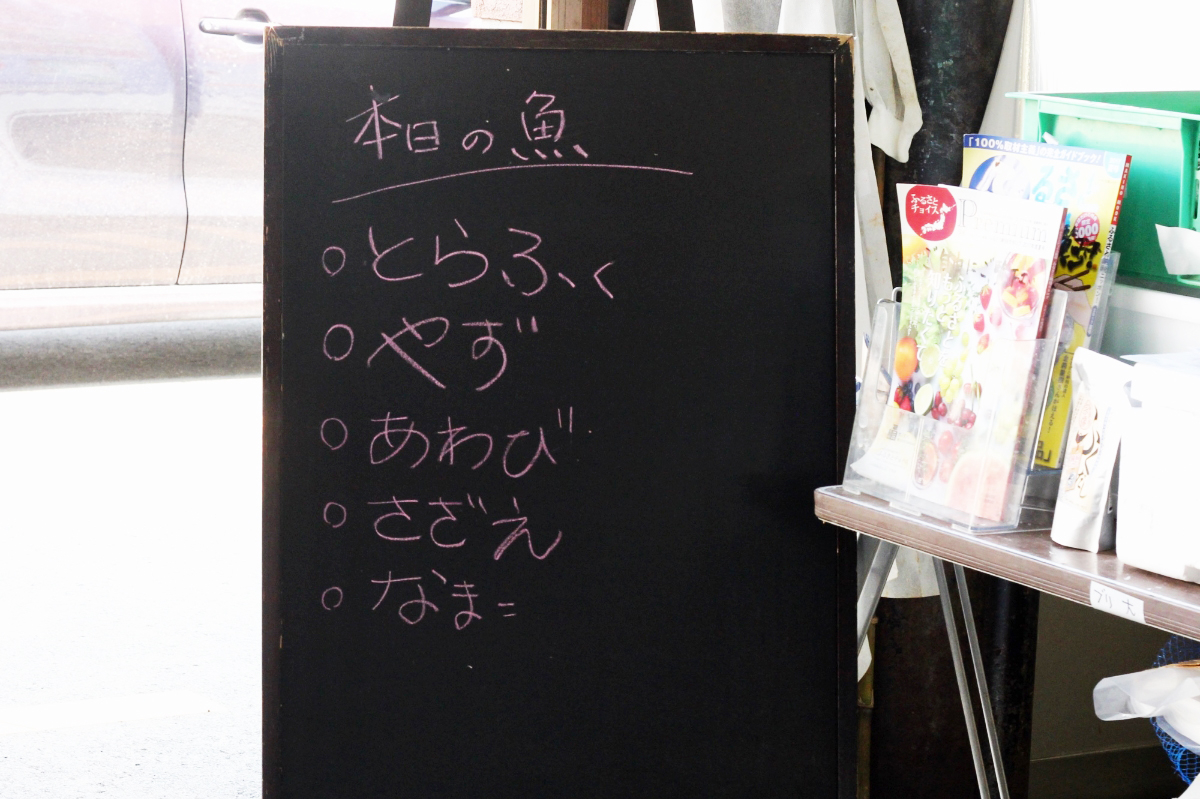 本日の魚
○とらふく
○やず
○あわび
○さざえ
○なまこ
「100%
ふるさと
チョイス
Premium
ブリ 大